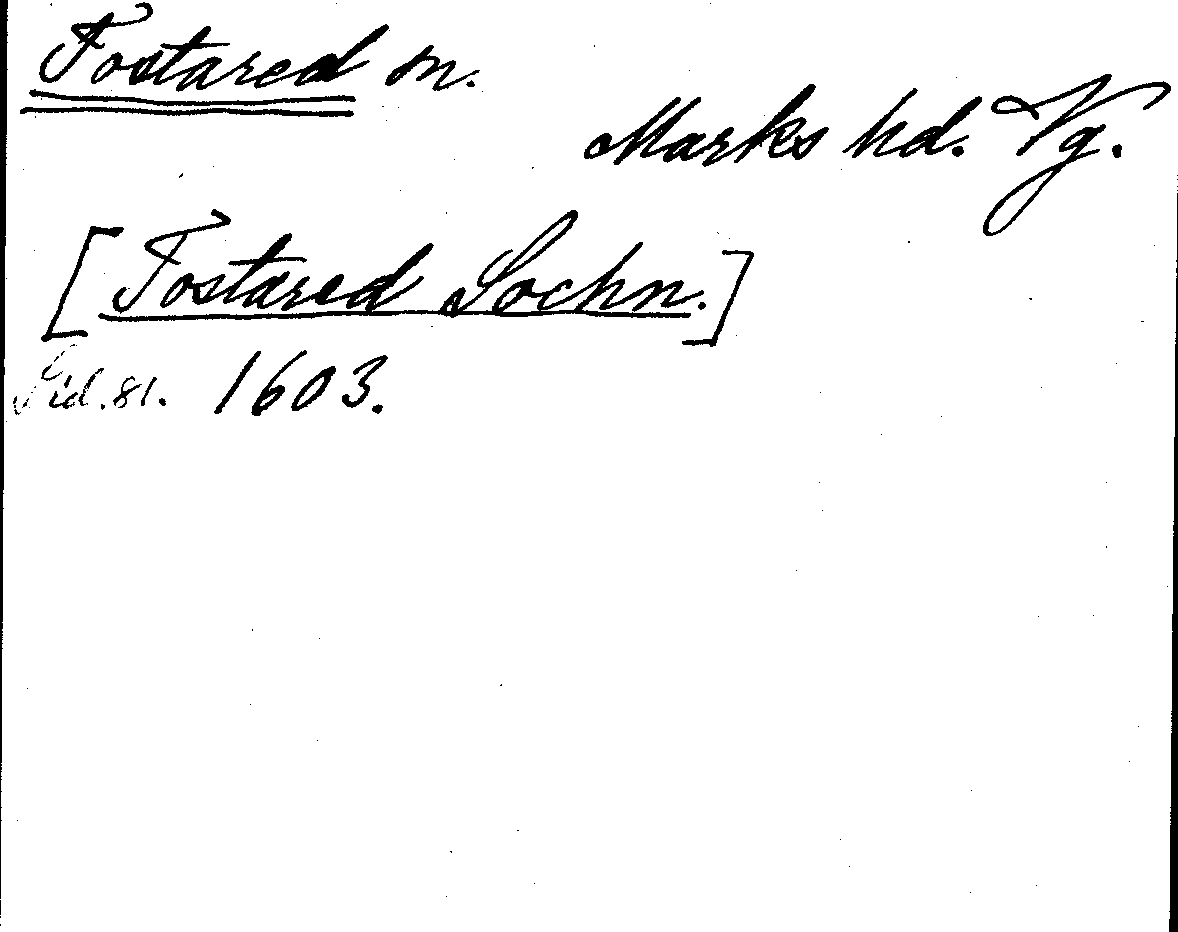 Tostared sn.
Marks hd. Vg.
[Tostared Sochn.]
Sid. 81. 1603.